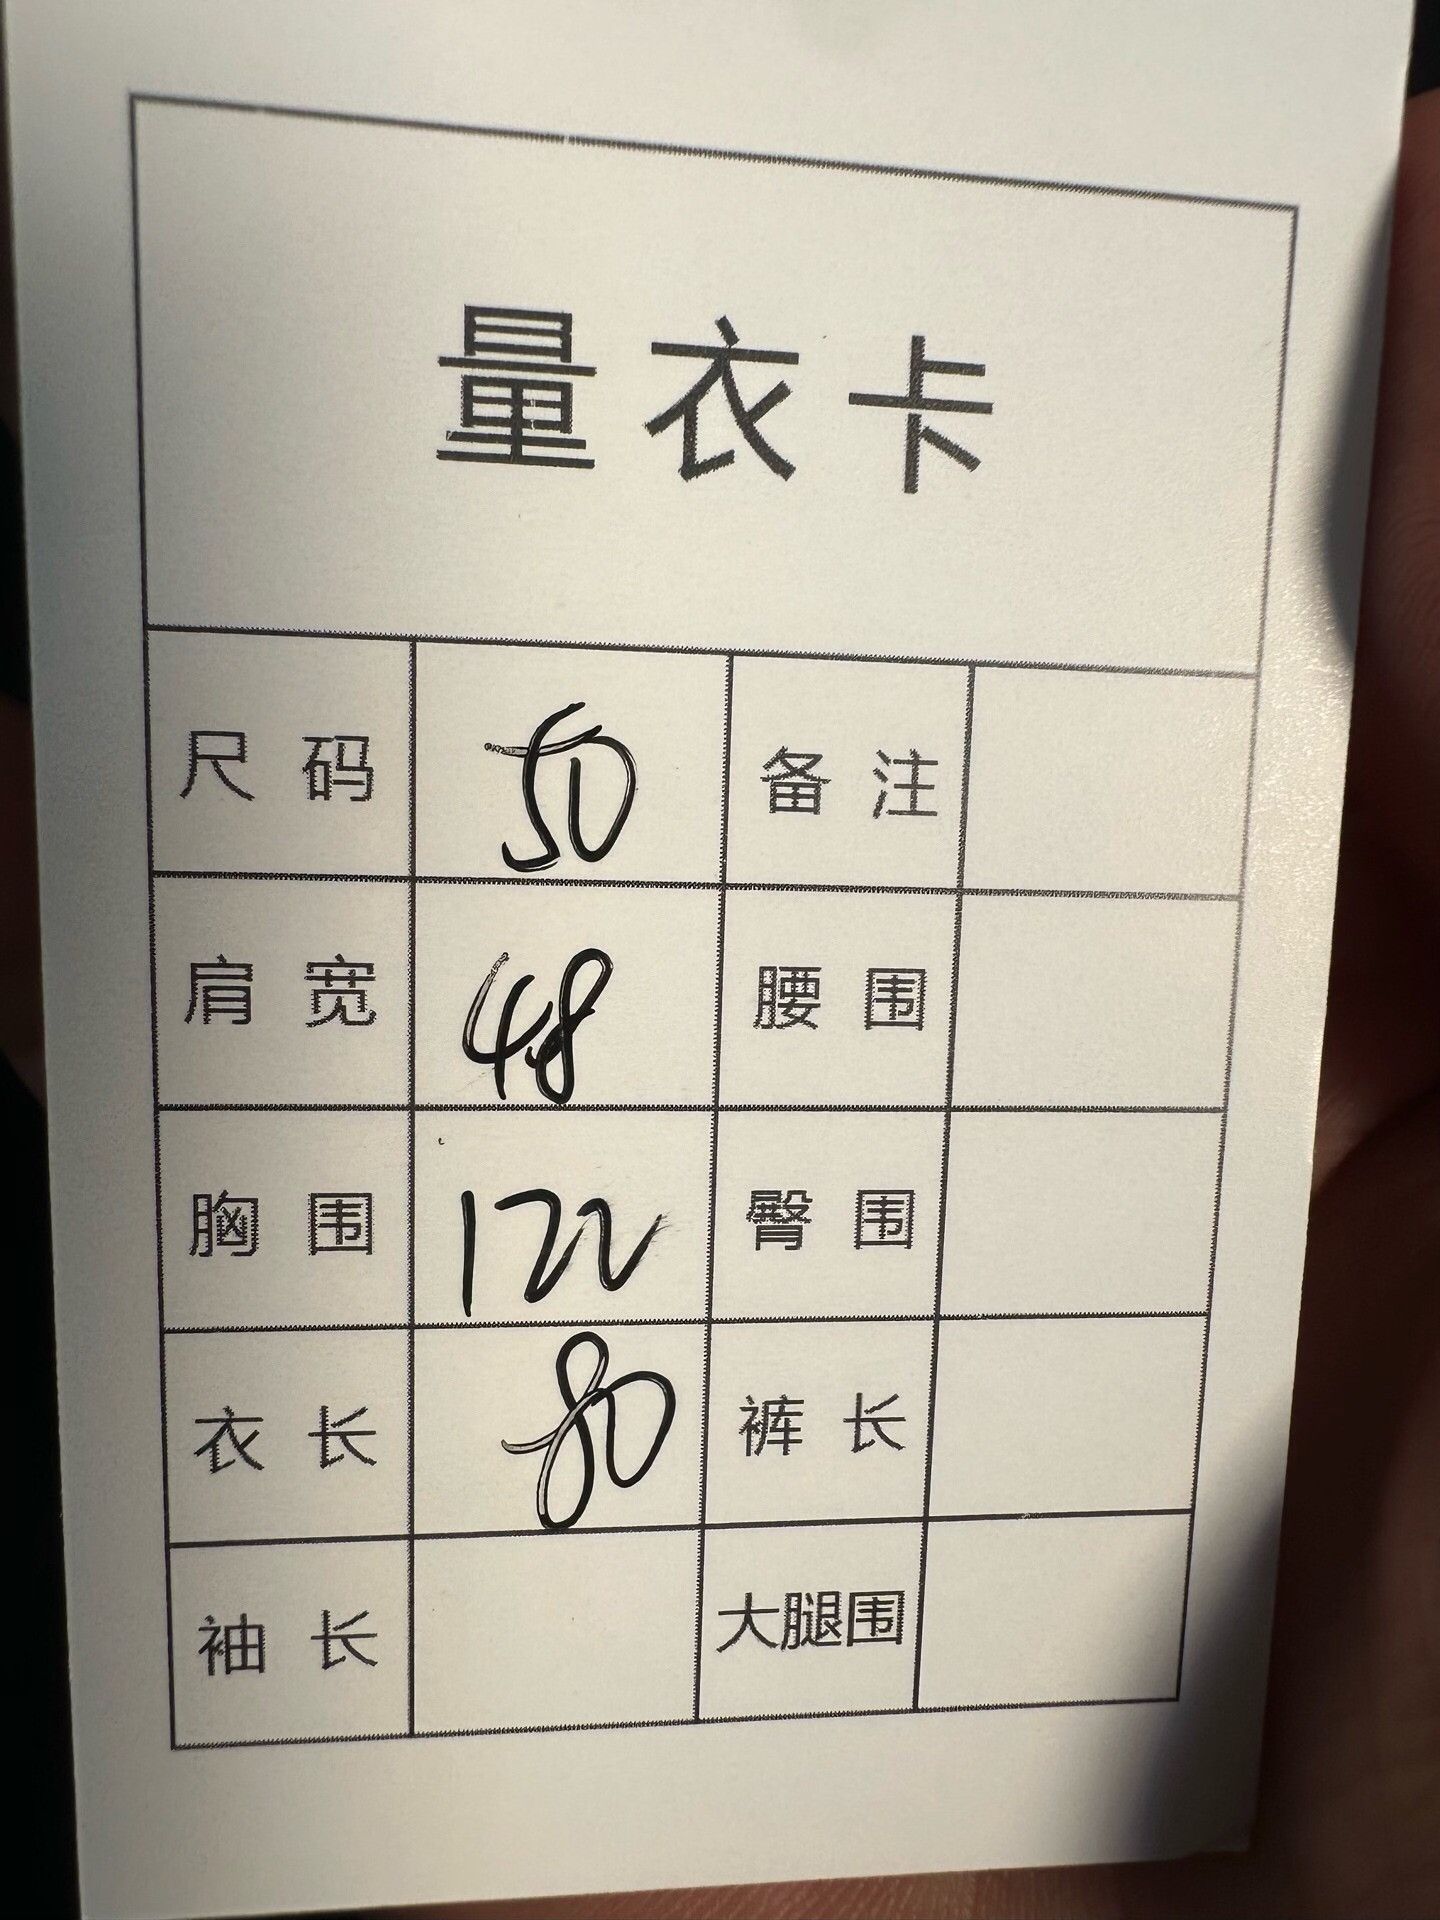 量衣卡
尺码 50 备注
肩宽 48 腰围
胸围 122 臀围
衣长 80 裤长
袖长 大腿围